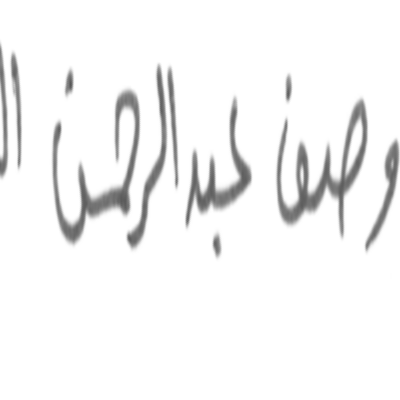 وصف عبدالرحمن ال